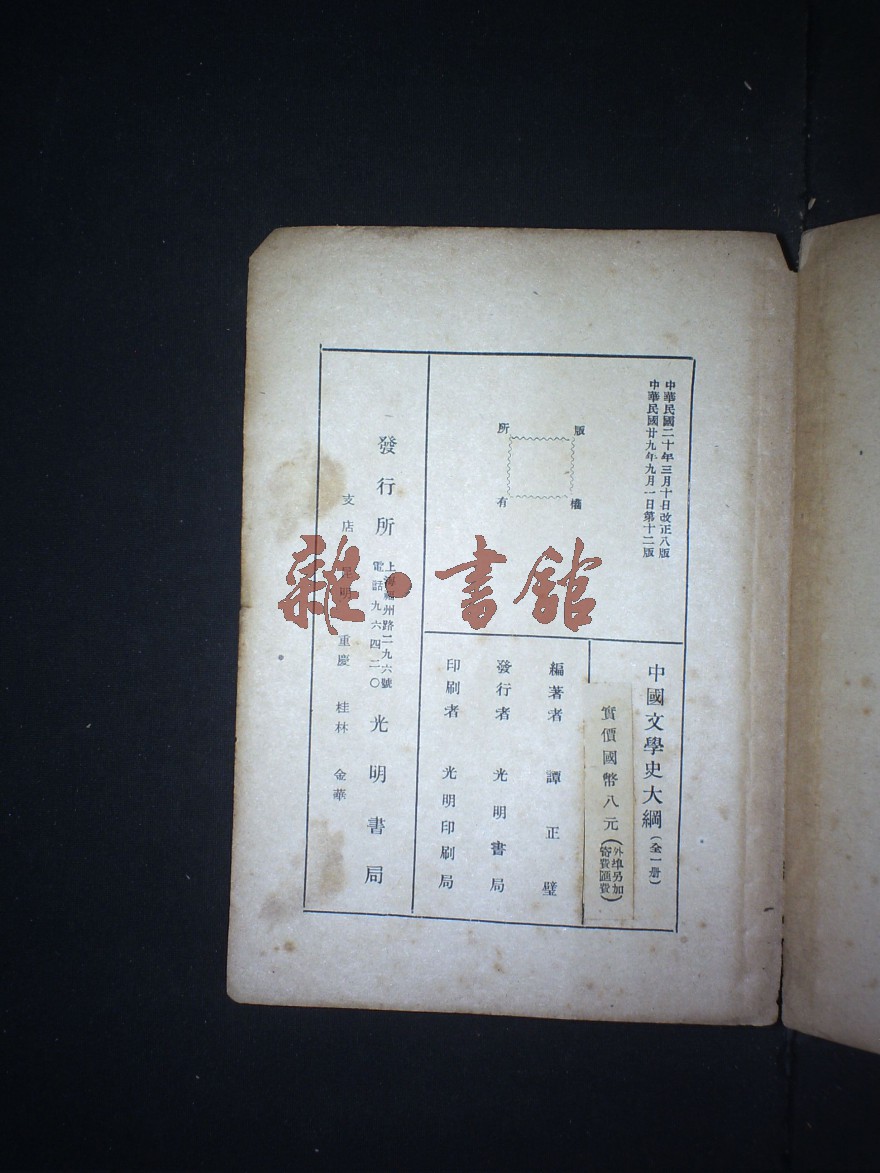 中華民國二十年三月十日改正八版
中華民國廿九年九月一日第十二版
版權所有
中國文學史大綱（全一册）
實價國幣八元（外埠另加寄費匯費）
編著者 譚正璧
發行者 光明書局
印刷者 光明印刷局
發行所
上海福州路二九六號
電話九六四二〇
光明書局
支店 昆明 重慶 桂林 金華
雜·書館